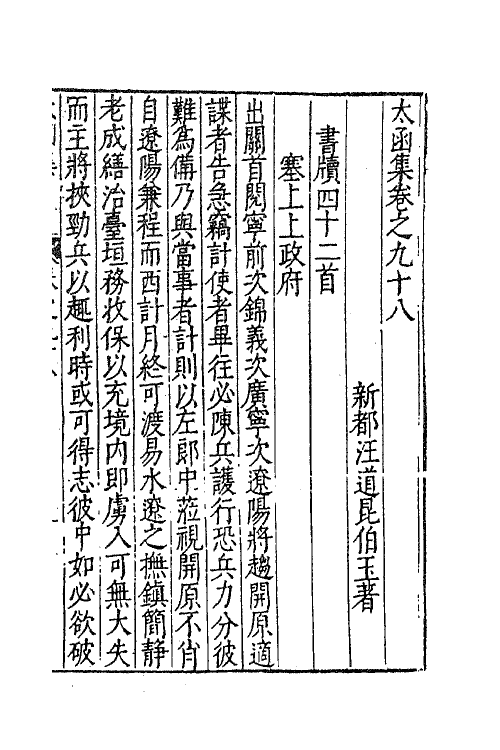 太函集卷之九十八
新都汪道昆伯玉著
書牘四十二首
塞上上政府
出關首閱寧前次錦義次廣寧次遼陽將趨開原適
諜者告急竊計使者畢往必陳兵護行恐兵力分彼
難為備乃與當事者計則以左郎中蒞視開原不肖
自遼陽兼程而西計月終可渡易水遼之撫鎮簡靜
老成繕治臺垣務收保以充境內即虜入可無大失
而主將挾勁兵以趣利時或可得志彼中如必欲破